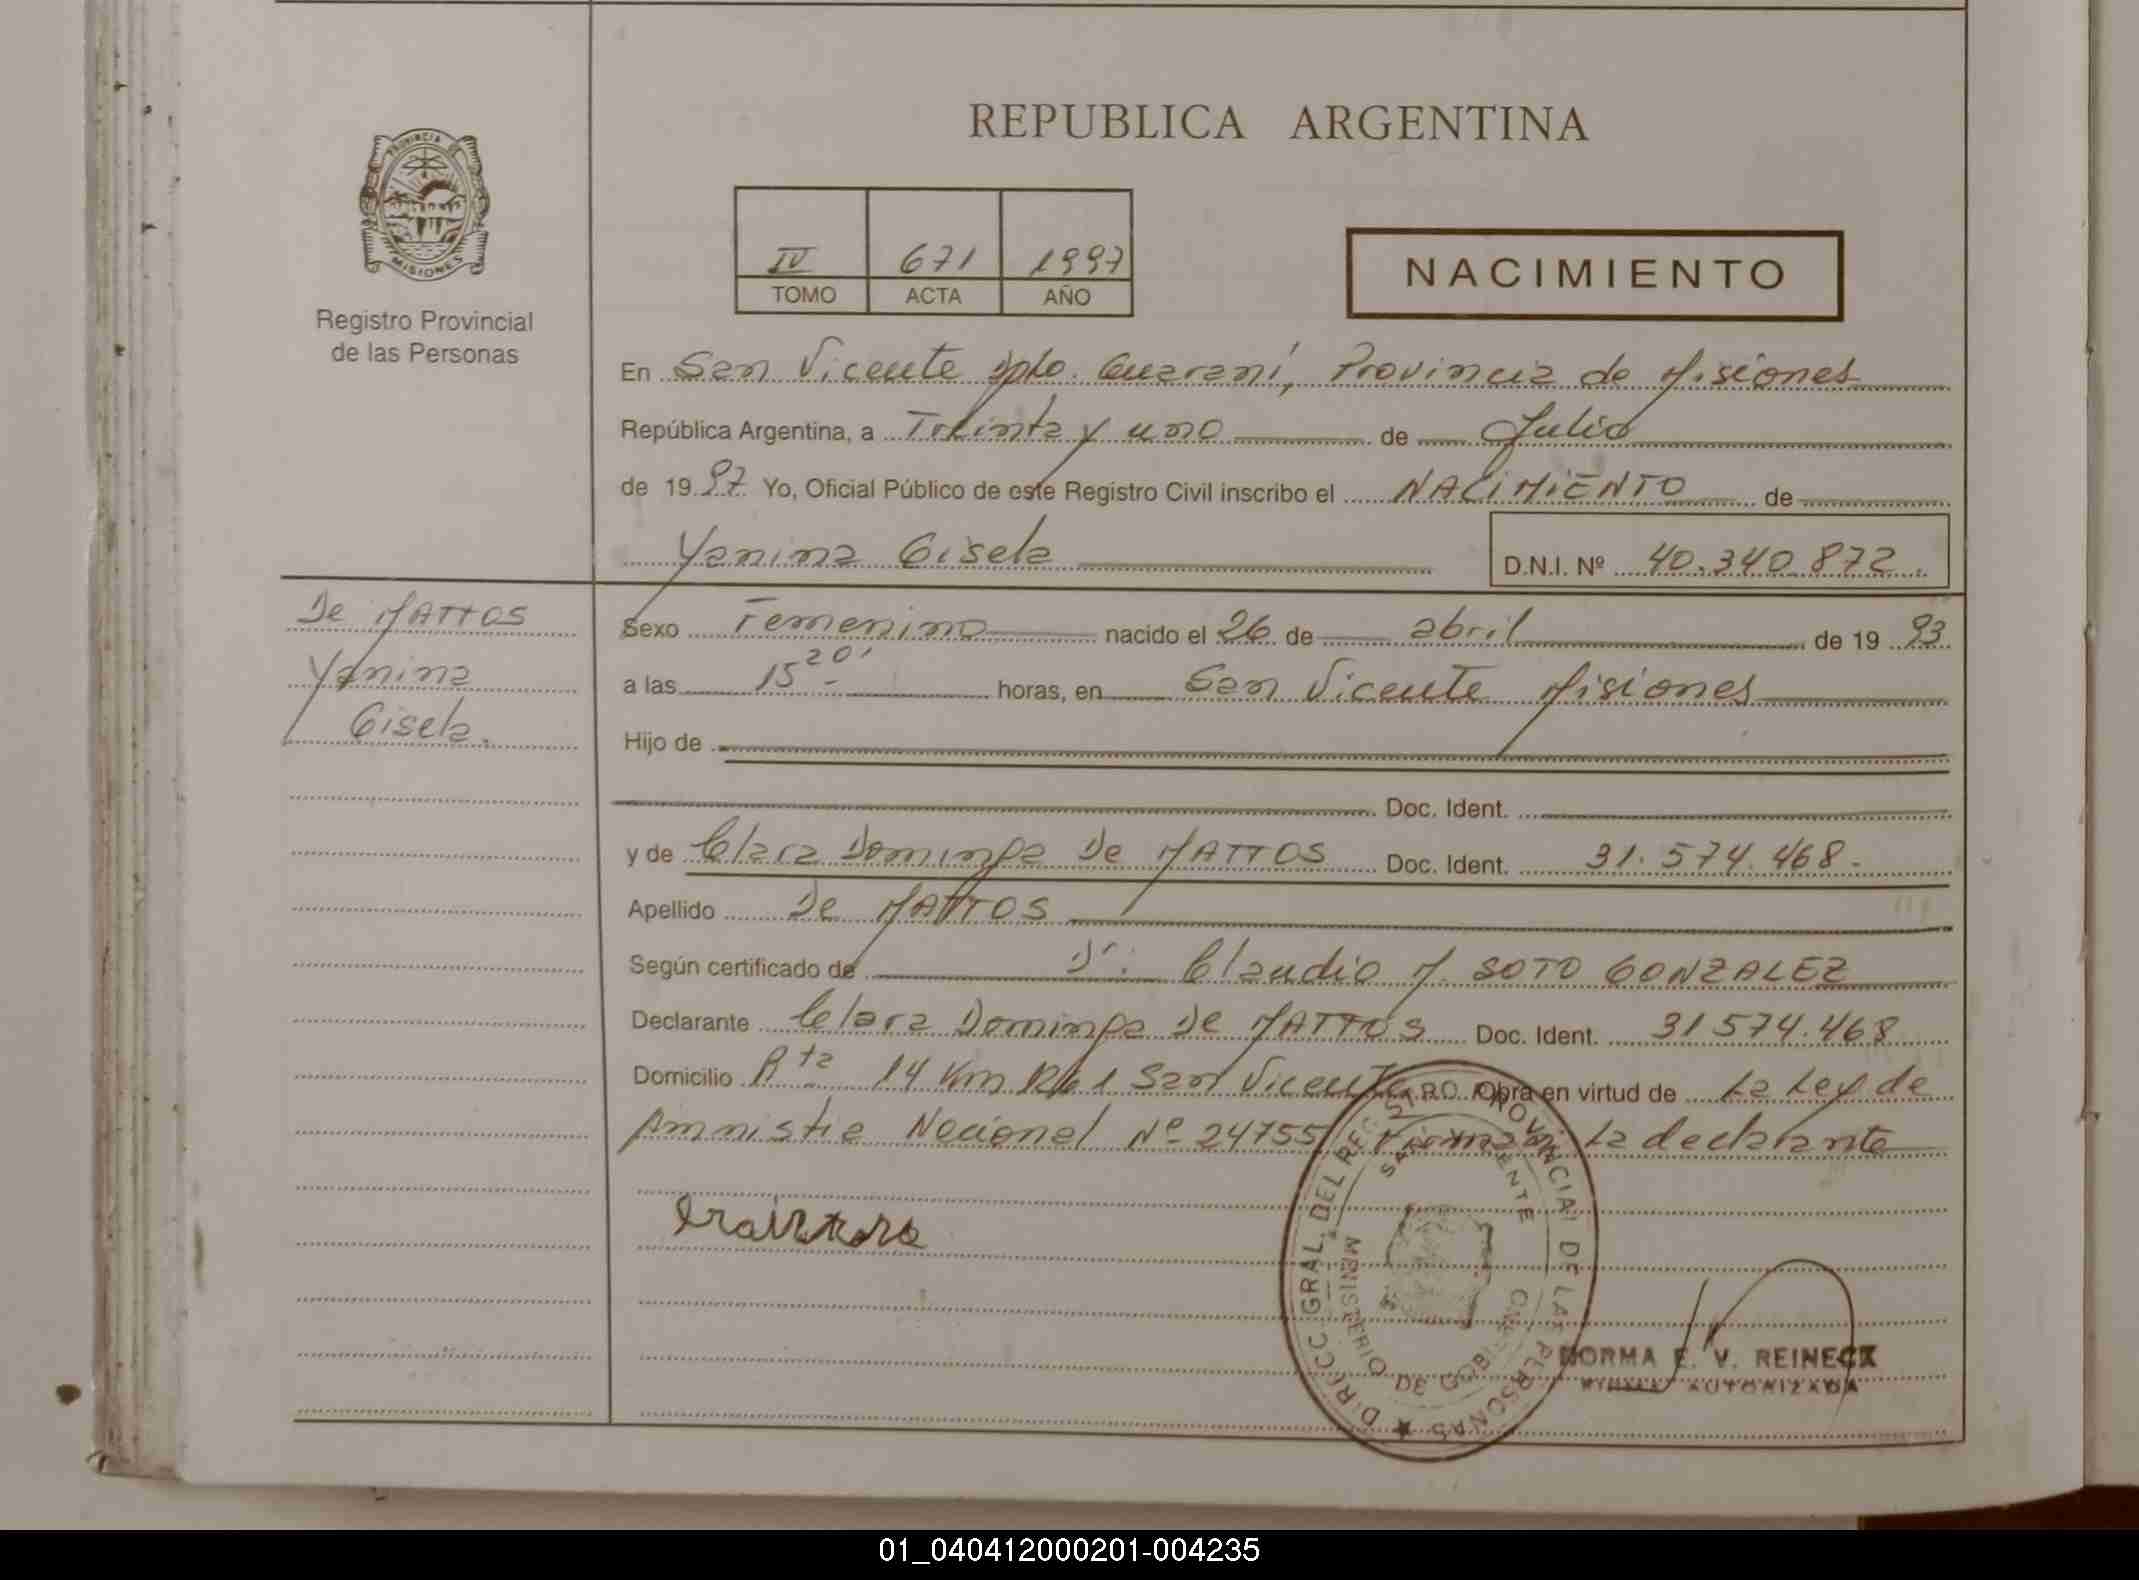 REPUBLICA ARGENTINA
PROVINCIA DE
MISIONES
Registro Provincial
de las Personas
IV 671 1997
TOMO ACTA AÑO
NACIMIENTO
En San Vicente Dpto. Guaraní, Provincia de Misiones
República Argentina, a Treinta y uno de Julio
de 1997 Yo, Oficial Público de este Registro Civil inscribo el NACIMIENTO de
Yanina Gisela D.N.I. Nº 40.340.872.
De MATTOS
Yanina
Gisela.
Sexo Femenino nacido el 26 de abril de 1993
a las 15 20' horas, en San Vicente Misiones
Hijo de
Doc. Ident.
y de Clara Dominga De MATTOS Doc. Ident. 31.574.468.-
Apellido De MATTOS
Según certificado de Dr. Claudio M. SOTO GONZALEZ
Declarante Clara Dominga De MATTOS Doc. Ident. 31574.468
Domicilio Rta 14 Km San Vicente Obra en virtud de La Ley de
Amnistia Nacional Nº 24755 La declarante
DIRECC. GRAL. DEL REGISTRO PROVINCIAL DE LAS PERSONAS
SAN VICENTE
MINISTERIO DE GOBIERNO
NORMA E. V. REINECK
FIRMA AUTORIZADA
01_040412000201-004235